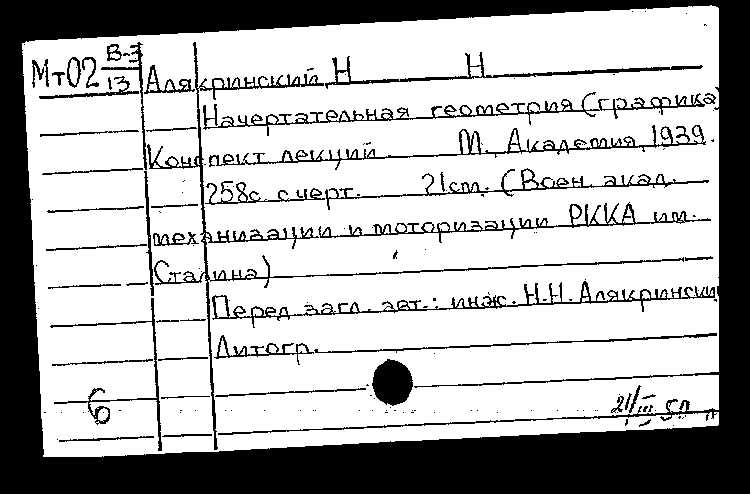 Мт02 В-3/13 Алякринский, Н Н
Начертательная геометрия (графика)
Конспект лекций М., Академия, 1939.
258с. с черт. 21см. (Воен. акад.
механизации и моторизации РККА им.
Сталина)
Перед загл. авт.: инж. Н.Н. Алякринский
Литогр.
6
21/III